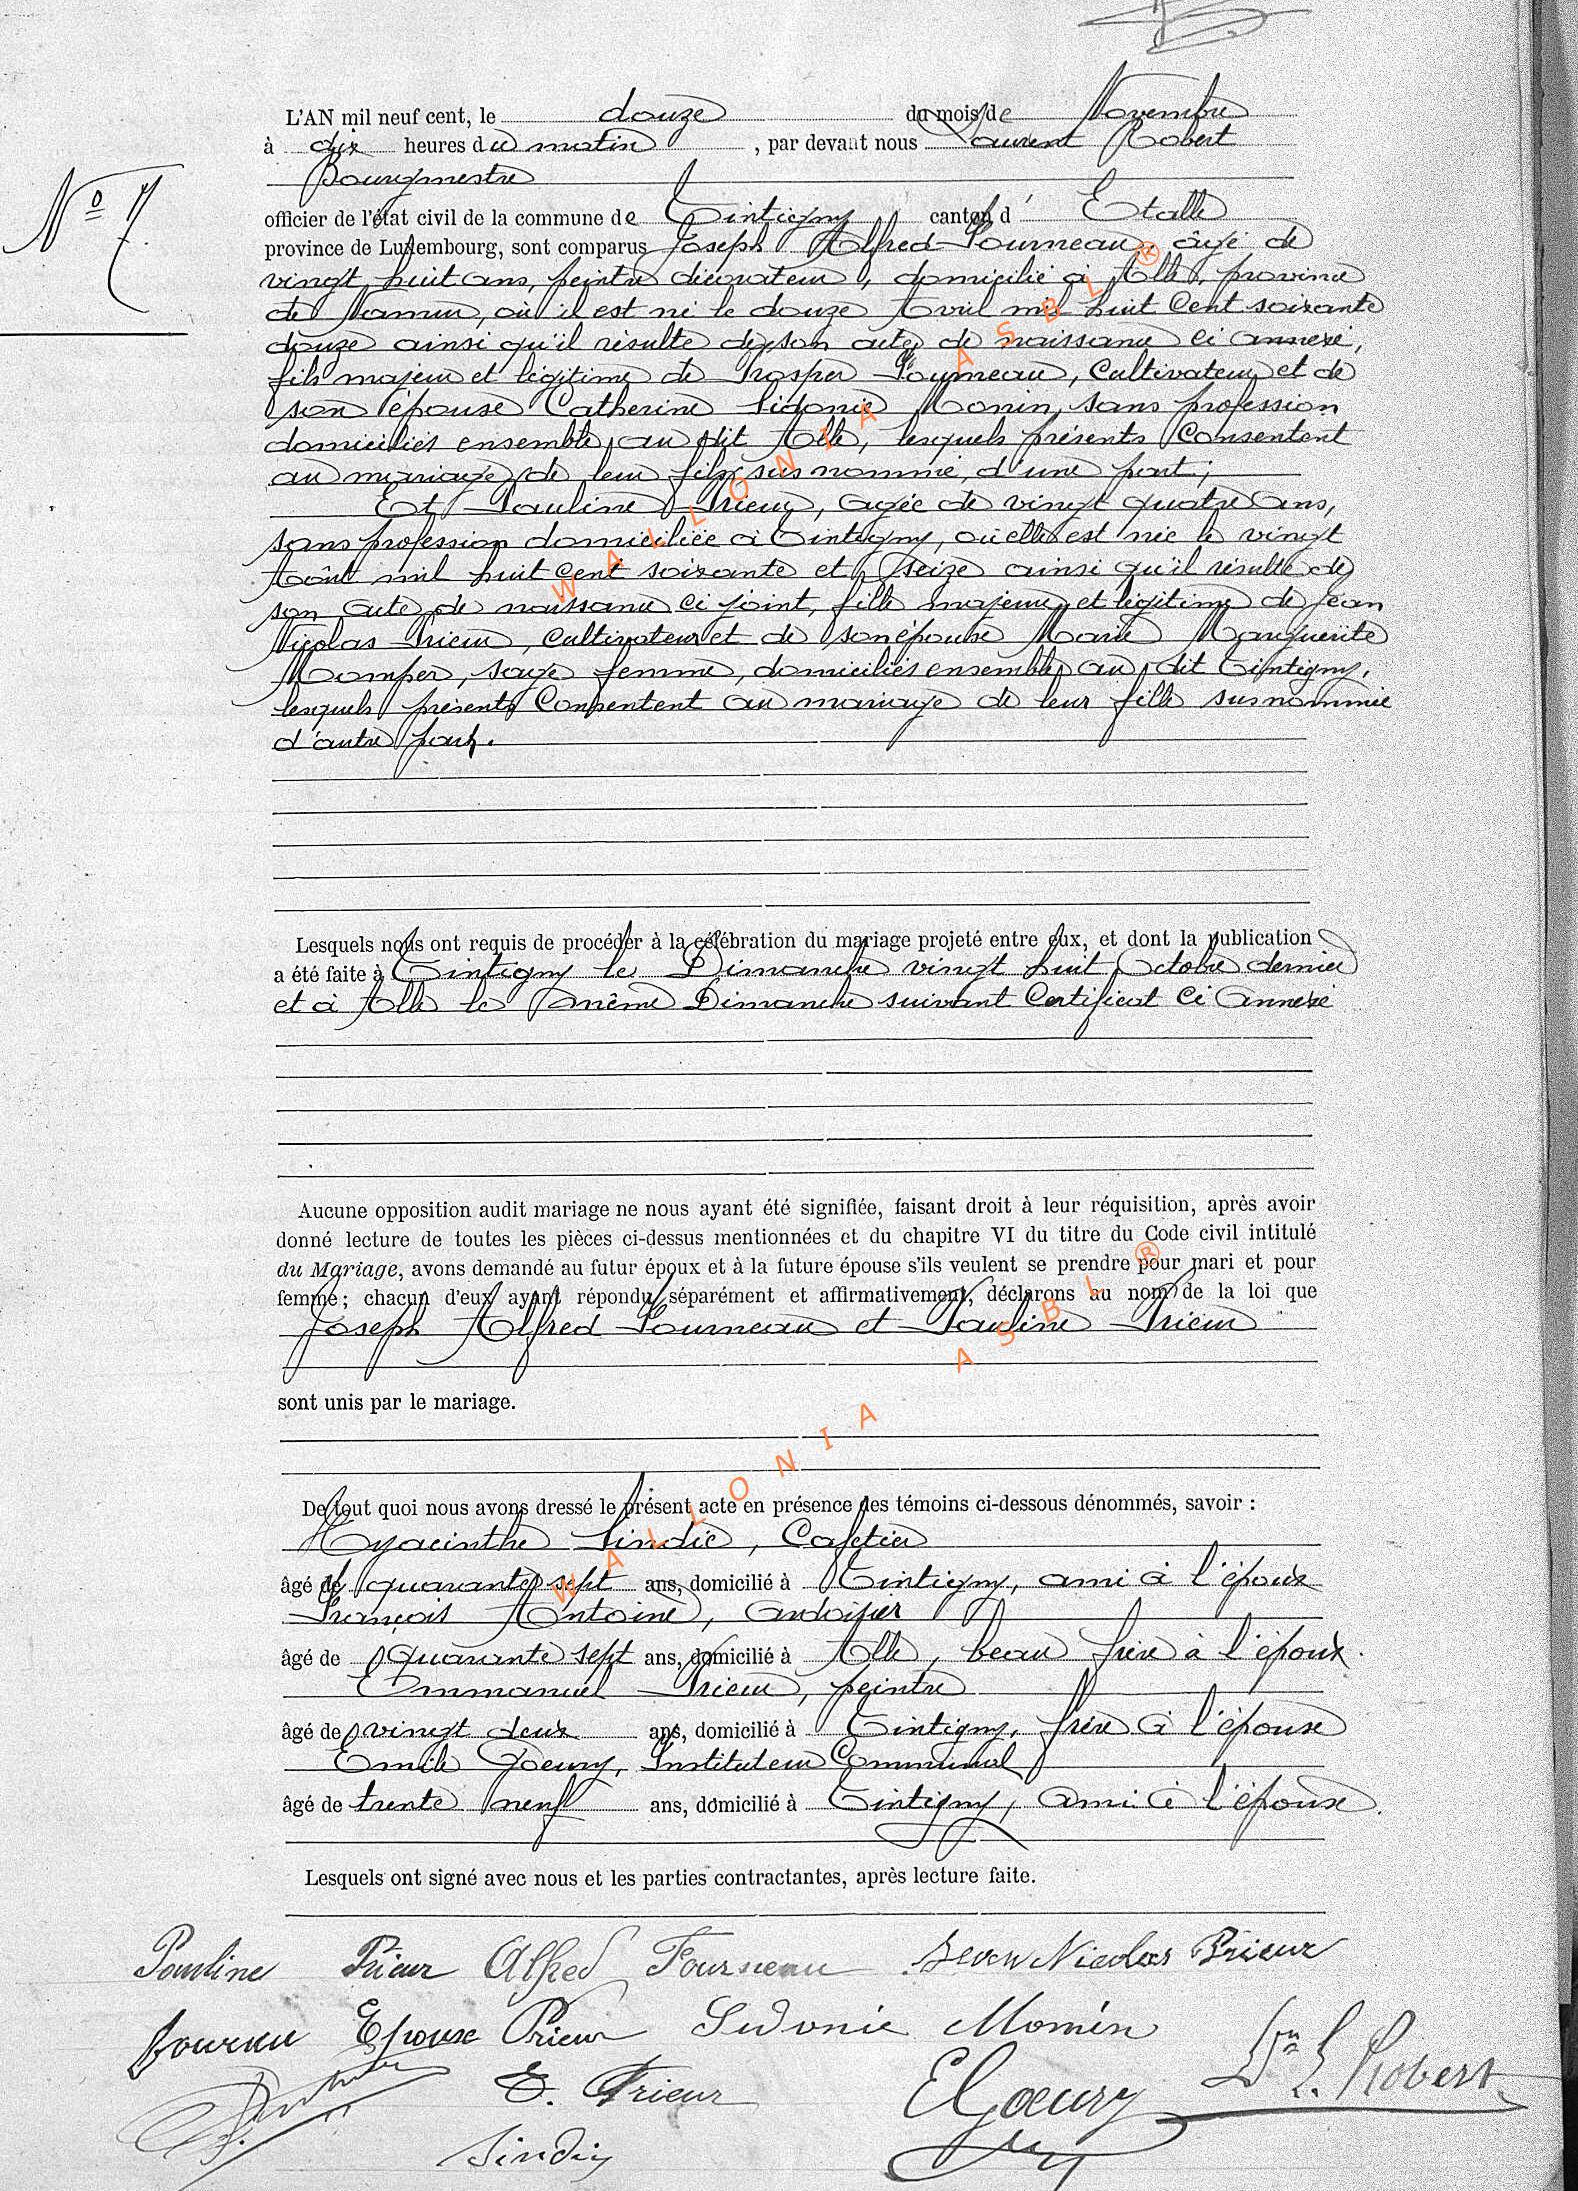 L'AN mil neuf cent, le douze du mois de Novembre
à dix heures du matin, par devant nous Laurent Robert
Bourgmestre
N° 7
officier de l'état civil de la commune de Tintigny canton d'Etalle
province de Luxembourg, sont comparus Joseph Alfred Fourneau, âgé de
vingt huit ans, peintre décorateur, domicilié à Alle, province
de Namur, où il est né le douze Avril mil huit Cent soixante
douze ainsi qu'il résulte de son acte de naissance ci annexé,
fils majeur et légitime de Prosper Fourneau, Cultivateur et de
son épouse Catherine Sidonie Monin, sans profession
domiciliés ensemble au dit Alle, lesquels présents Consentent
au mariage de leur fils susnommé, d'une part ;
Et Pauline Prieur, agée de vingt quatre ans,
sans profession domiciliée à Tintigny, où elle est née le vingt
Août mil huit Cent soixante et seize ainsi qu'il résulte de
son acte de naissance ci joint, fille majeure et légitime de Jean
Nicolas Prieur, Cultivateur et de son épouse Marie Marguerite
sage femme, domiciliés ensemble au dit Tintigny,
lesquels présents Consentent au mariage de leur fille susnommée
d'autre part.
Lesquels nous ont requis de procéder à la célébration du mariage projeté entre eux, et dont la publication
a été faite à Tintigny le Dimanche vingt huit Octobre dernier
et à Alle le même Dimanche suivant Certificat Ci Annexé
Aucune opposition audit mariage ne nous ayant été signifiée, faisant droit à leur réquisition, après avoir
donné lecture de toutes les pièces ci-dessus mentionnées et du chapitre VI du titre du Code civil intitulé
du Mariage, avons demandé au futur époux et à la future épouse s'ils veulent se prendre pour mari et pour
femme ; chacun d'eux ayant répondu séparément et affirmativement, déclarons au nom de la loi que
Joseph Alfred Fourneau et Pauline Prieur
sont unis par le mariage.
De tout quoi nous avons dressé le présent acte en présence des témoins ci-dessous dénommés, savoir :
Hyacinthe Sindic, Cafetier
âgé de quarante sept ans, domicilié à Tintigny, ami à l'époux
François Antoine, ardoisier
âgé de Quarante sept ans, domicilié à Alle, beau frère à l'époux.
Emmanuel Prieur, peintre
âgé de vingt deux ans, domicilié à Tintigny, frère à l'épouse
Emile Goeury, Instituteur Communal
âgé de trente neuf ans, domicilié à Tintigny, ami à l'épouse.
Lesquels ont signé avec nous et les parties contractantes, après lecture faite.
Pauline Prieur Alfred Fourneau Jean Nicolas Prieur
Epouse Prieur Sidonie Monin
L. Robert
E. Prieur
E Goeury
Sindic
WALLONIA ASBL ®
WALLONIA ASBL ®